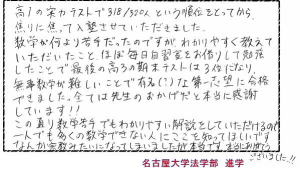 高1の実力テストで318/320人という順位をとってから、
焦りに焦って入塾させていただきました。
数学が何より苦手だったのですがわかりやすく教えて
いただいたことほぼ毎日自習室をお借りして勉強
したことで最後の高3の期末テストは3位になり
無事数学が難しいことで有名(?)な第一志望に合格
できました。全ては先生のおかげだと本当に感謝
しています!!
この真り数学苦手でもわかりやすい解説をしていただけるので
一人でも多くの数学できない人にここを知ってほしいです
なんか宗教みたいになってしまいましたが本当です本当にありがとう
ございました!!
名古屋大学法学部 進学